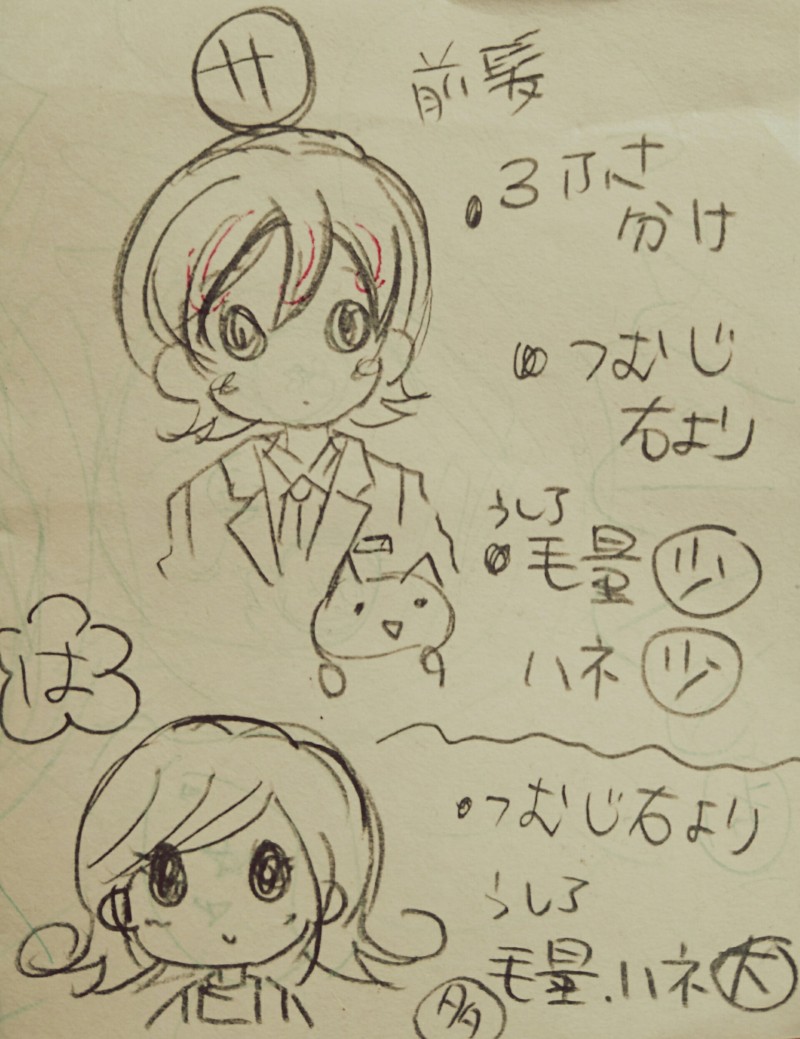 サ
前髪
・3ふさ
分け
・つむじ
右より
うしろ
・毛量 少
ハネ 少
は
・つむじ右より
うしろ
毛量.ハネ 大
多